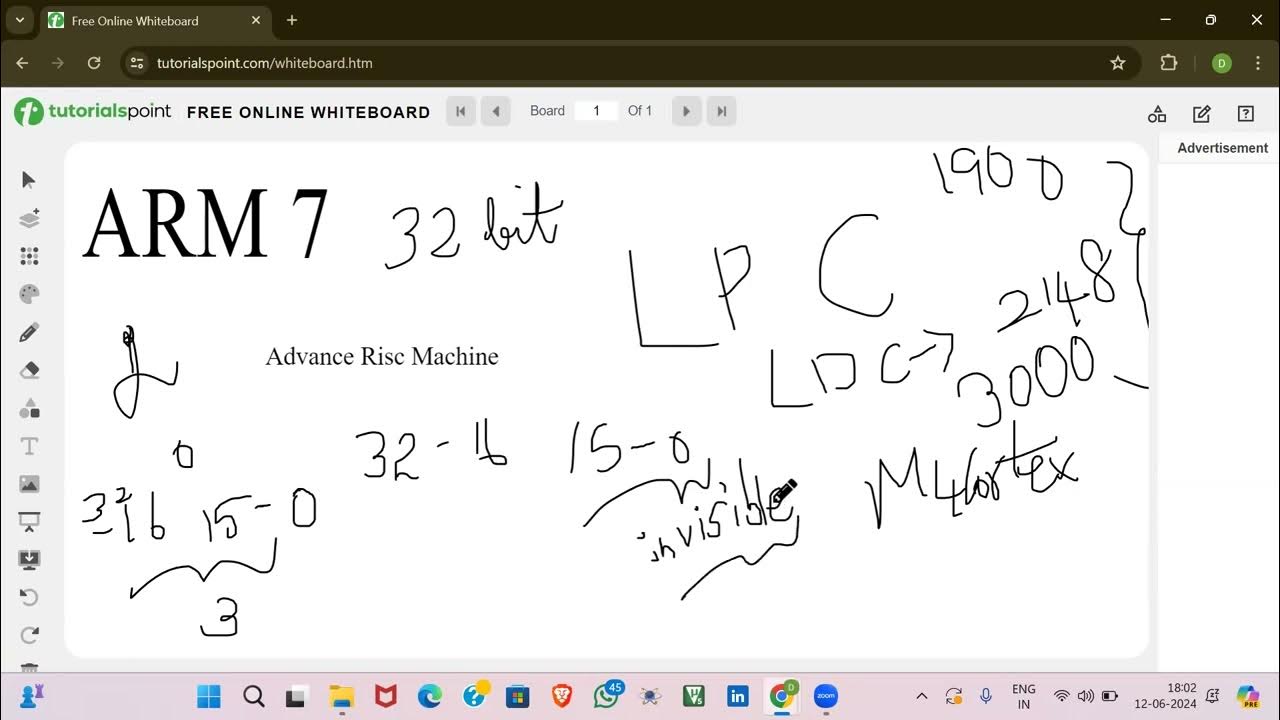 Free Online Whiteboard
tutorialspoint.com/whiteboard.htm
D
tutorialspoint FREE ONLINE WHITEBOARD
Board 1 Of 1
Advertisement
1900
ARM 7 32 bit
LPC
2148
Advance Risc Machine
LDC→
3000
0
32 - 16 15-0
M4 Cortex
15-0
invisible
3
45
ENG
IN
18:02
12-06-2024
zoom
PRE